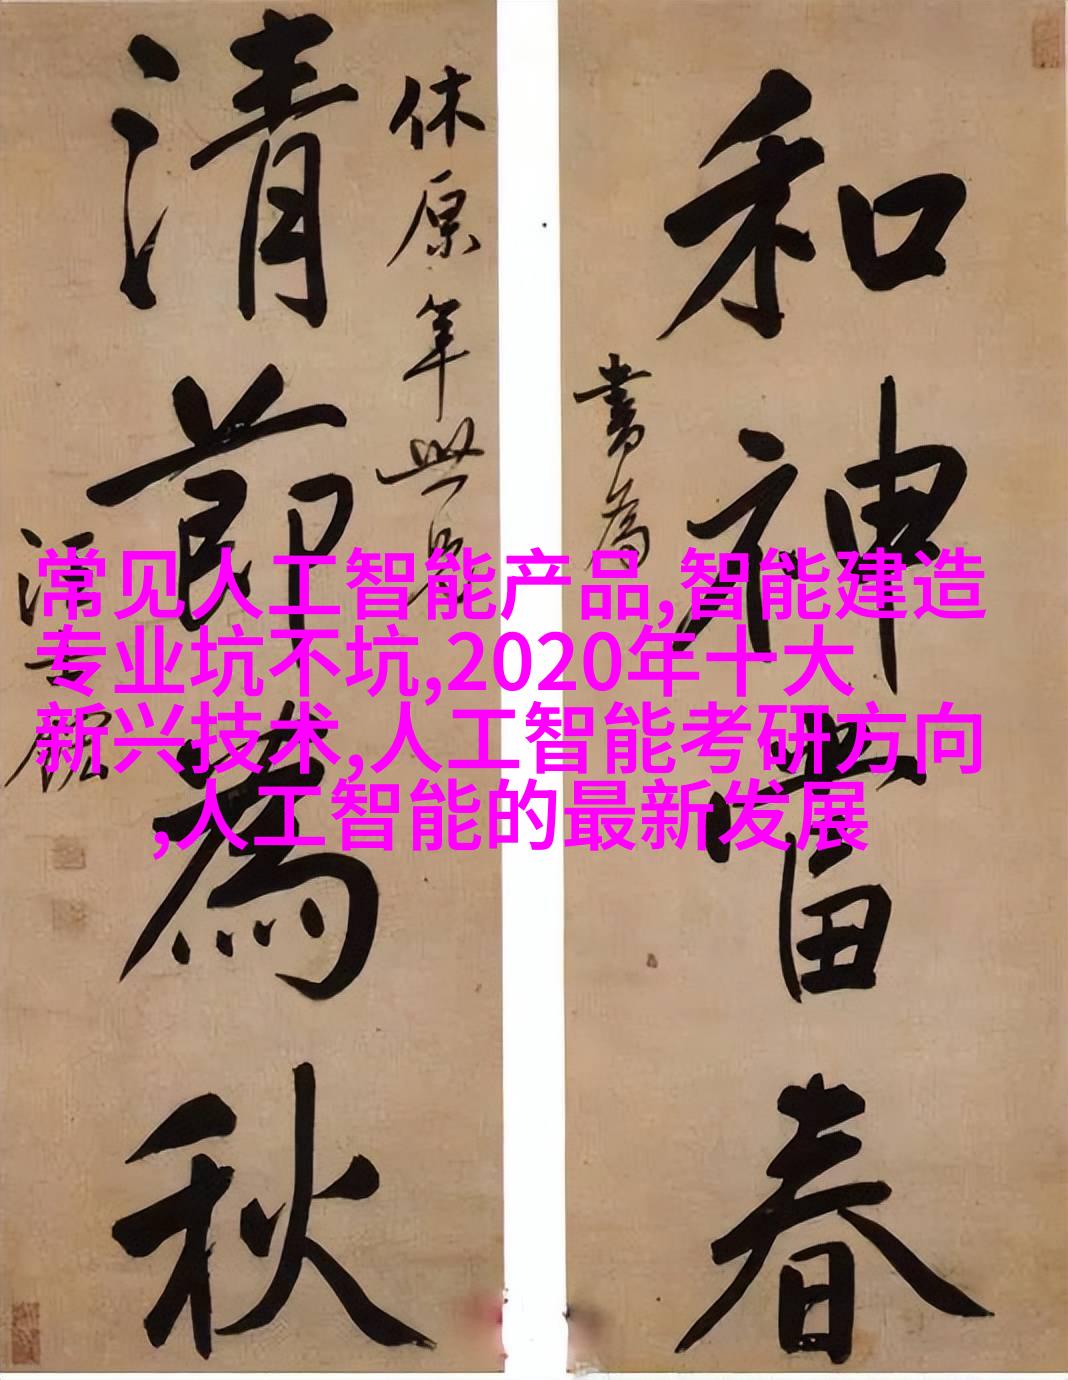 和神當春
書為
休原年世兄
清節為秋
汪士鋐
常见人工智能产品,智能建造
专业坑不坑,2020年十大
新兴技术,人工智能考研方向
,人工智能的最新发展